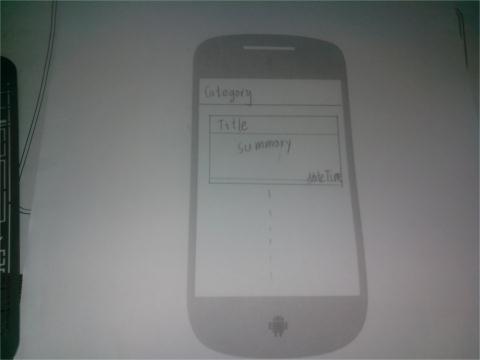 Category
Title
summary
dateTime